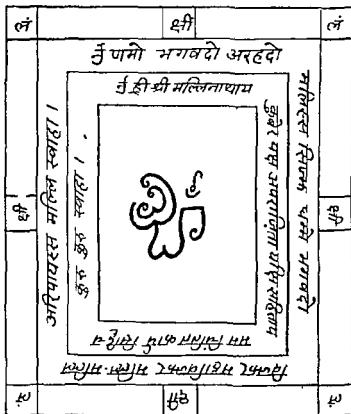 लं
क्षी
लं
ॐ णमो भगवदो अरहदो
मल्लिस्स सिज्झ धम्मे भगवदो
विज्झर महाविज्झर मल्लि-मल्लि
अरिपायस्स मल्लि स्वाहा।
ॐ ह्री श्री मल्लिनाथाय
कुबेर यक्ष अपराजिता यक्षि सहिताय
मम चिंतित कार्य सिद्धि
कुरु कुरु स्वाहा।
लं
लं